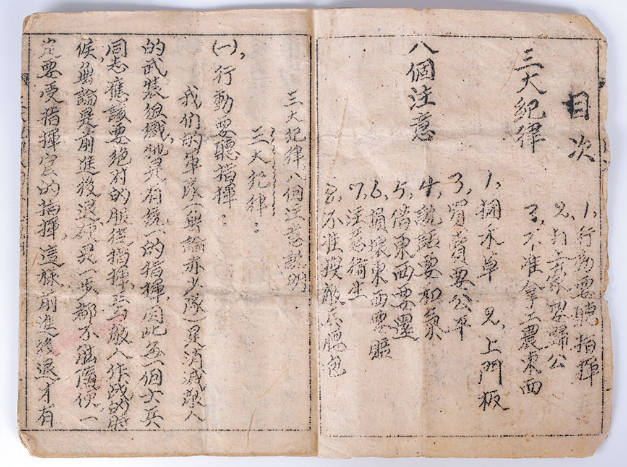 目次
三大紀律
1,行動要聽指揮
2,打土豪要歸公
3,不准拿工農東西
八個注意
1,捆禾草 2,上門板
3,買賣要公平
4,說話要和氣
5,借東西要還
6,損壞東西要賠
7,注意衛生
8,不准搜敵兵腰包
三大紀律八個注意說明
三大紀律:
(一),行動要聽指揮:
我们的軍隊無論亦少隊是消滅敵人
的武裝組織,就是有統一的指揮,因此每一個士兵
同志應該要絕对的服從指揮,与敵人作战的時
候,無論是前進後退,那是一步都不能隨便,一
定要受指揮官的指揮,這樣前進後退才有